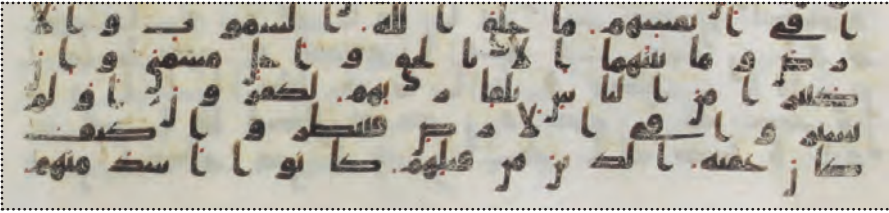 ا في انفسهم ما خلق الله السموت والا
رض وما بينهما الا بالحق واجل مسمى وان
كثيرا من الناس بلقا ربهم لكفرون اولم
يسيروا في الارض فينظروا كيف
كان عقبة الذين من قبلهم كانوا اشد منهم